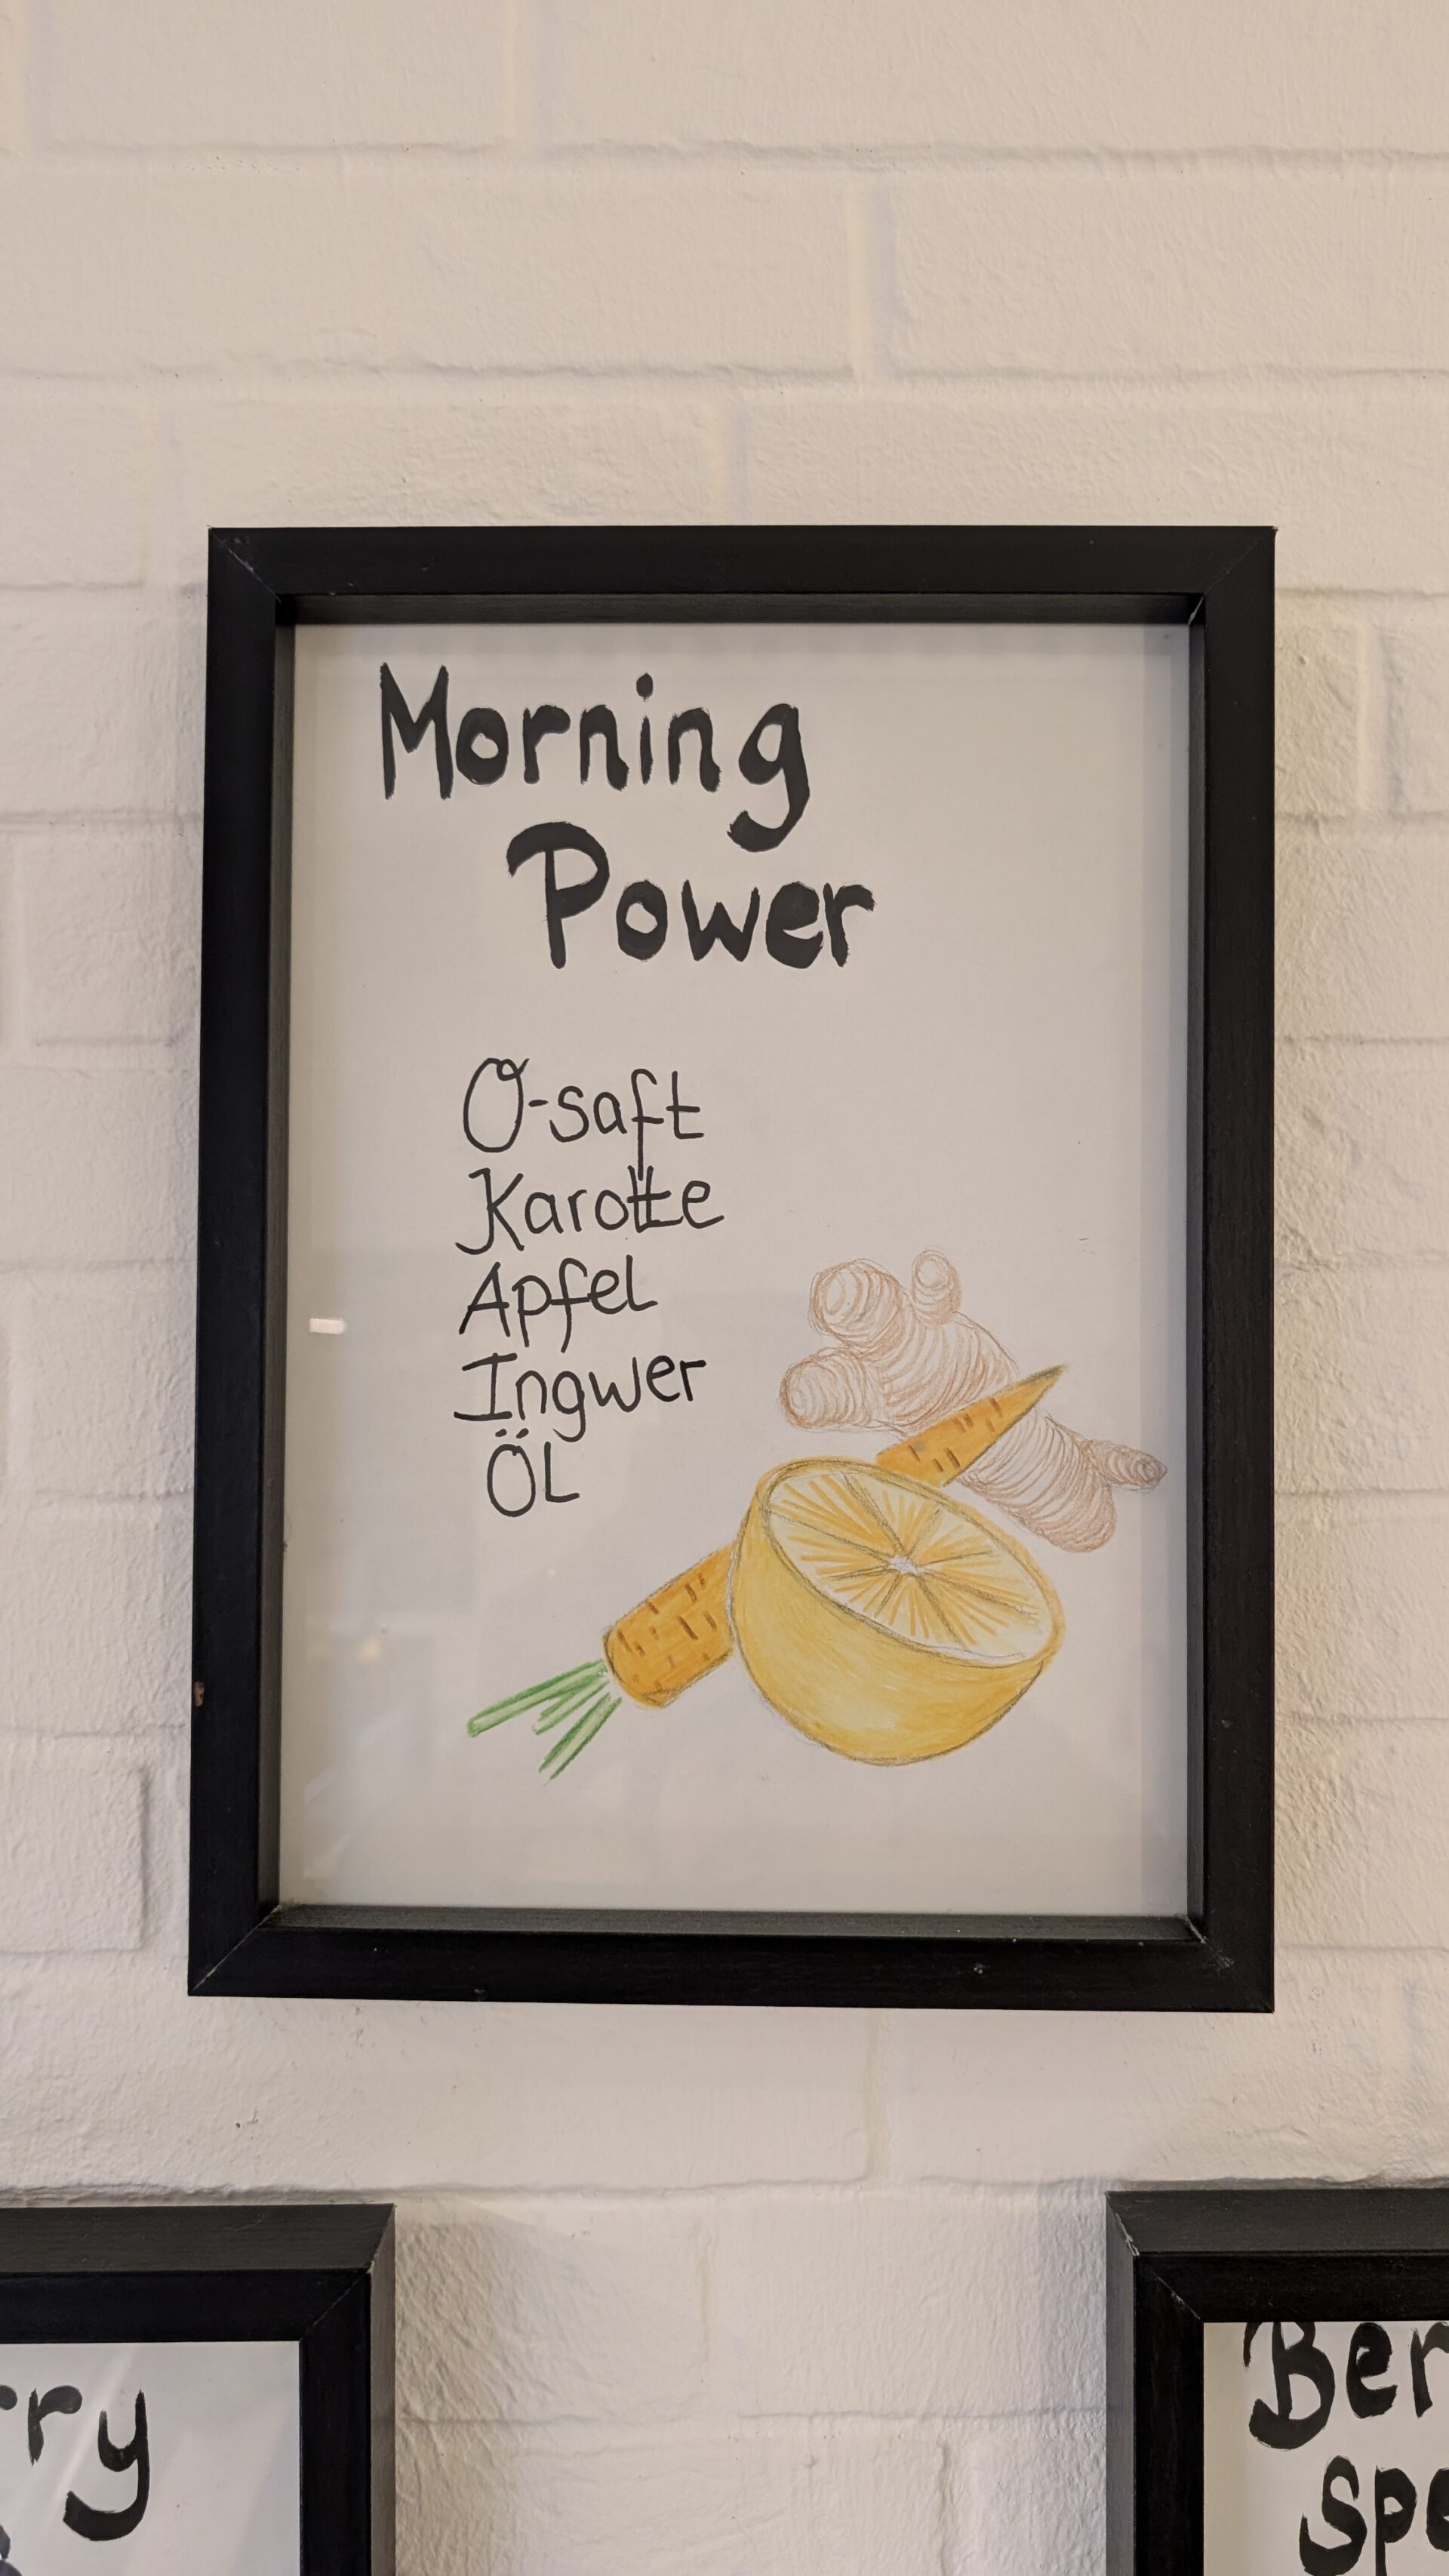 Morning
Power
O-saft
Karotte
Apfel
Ingwer
ÖL